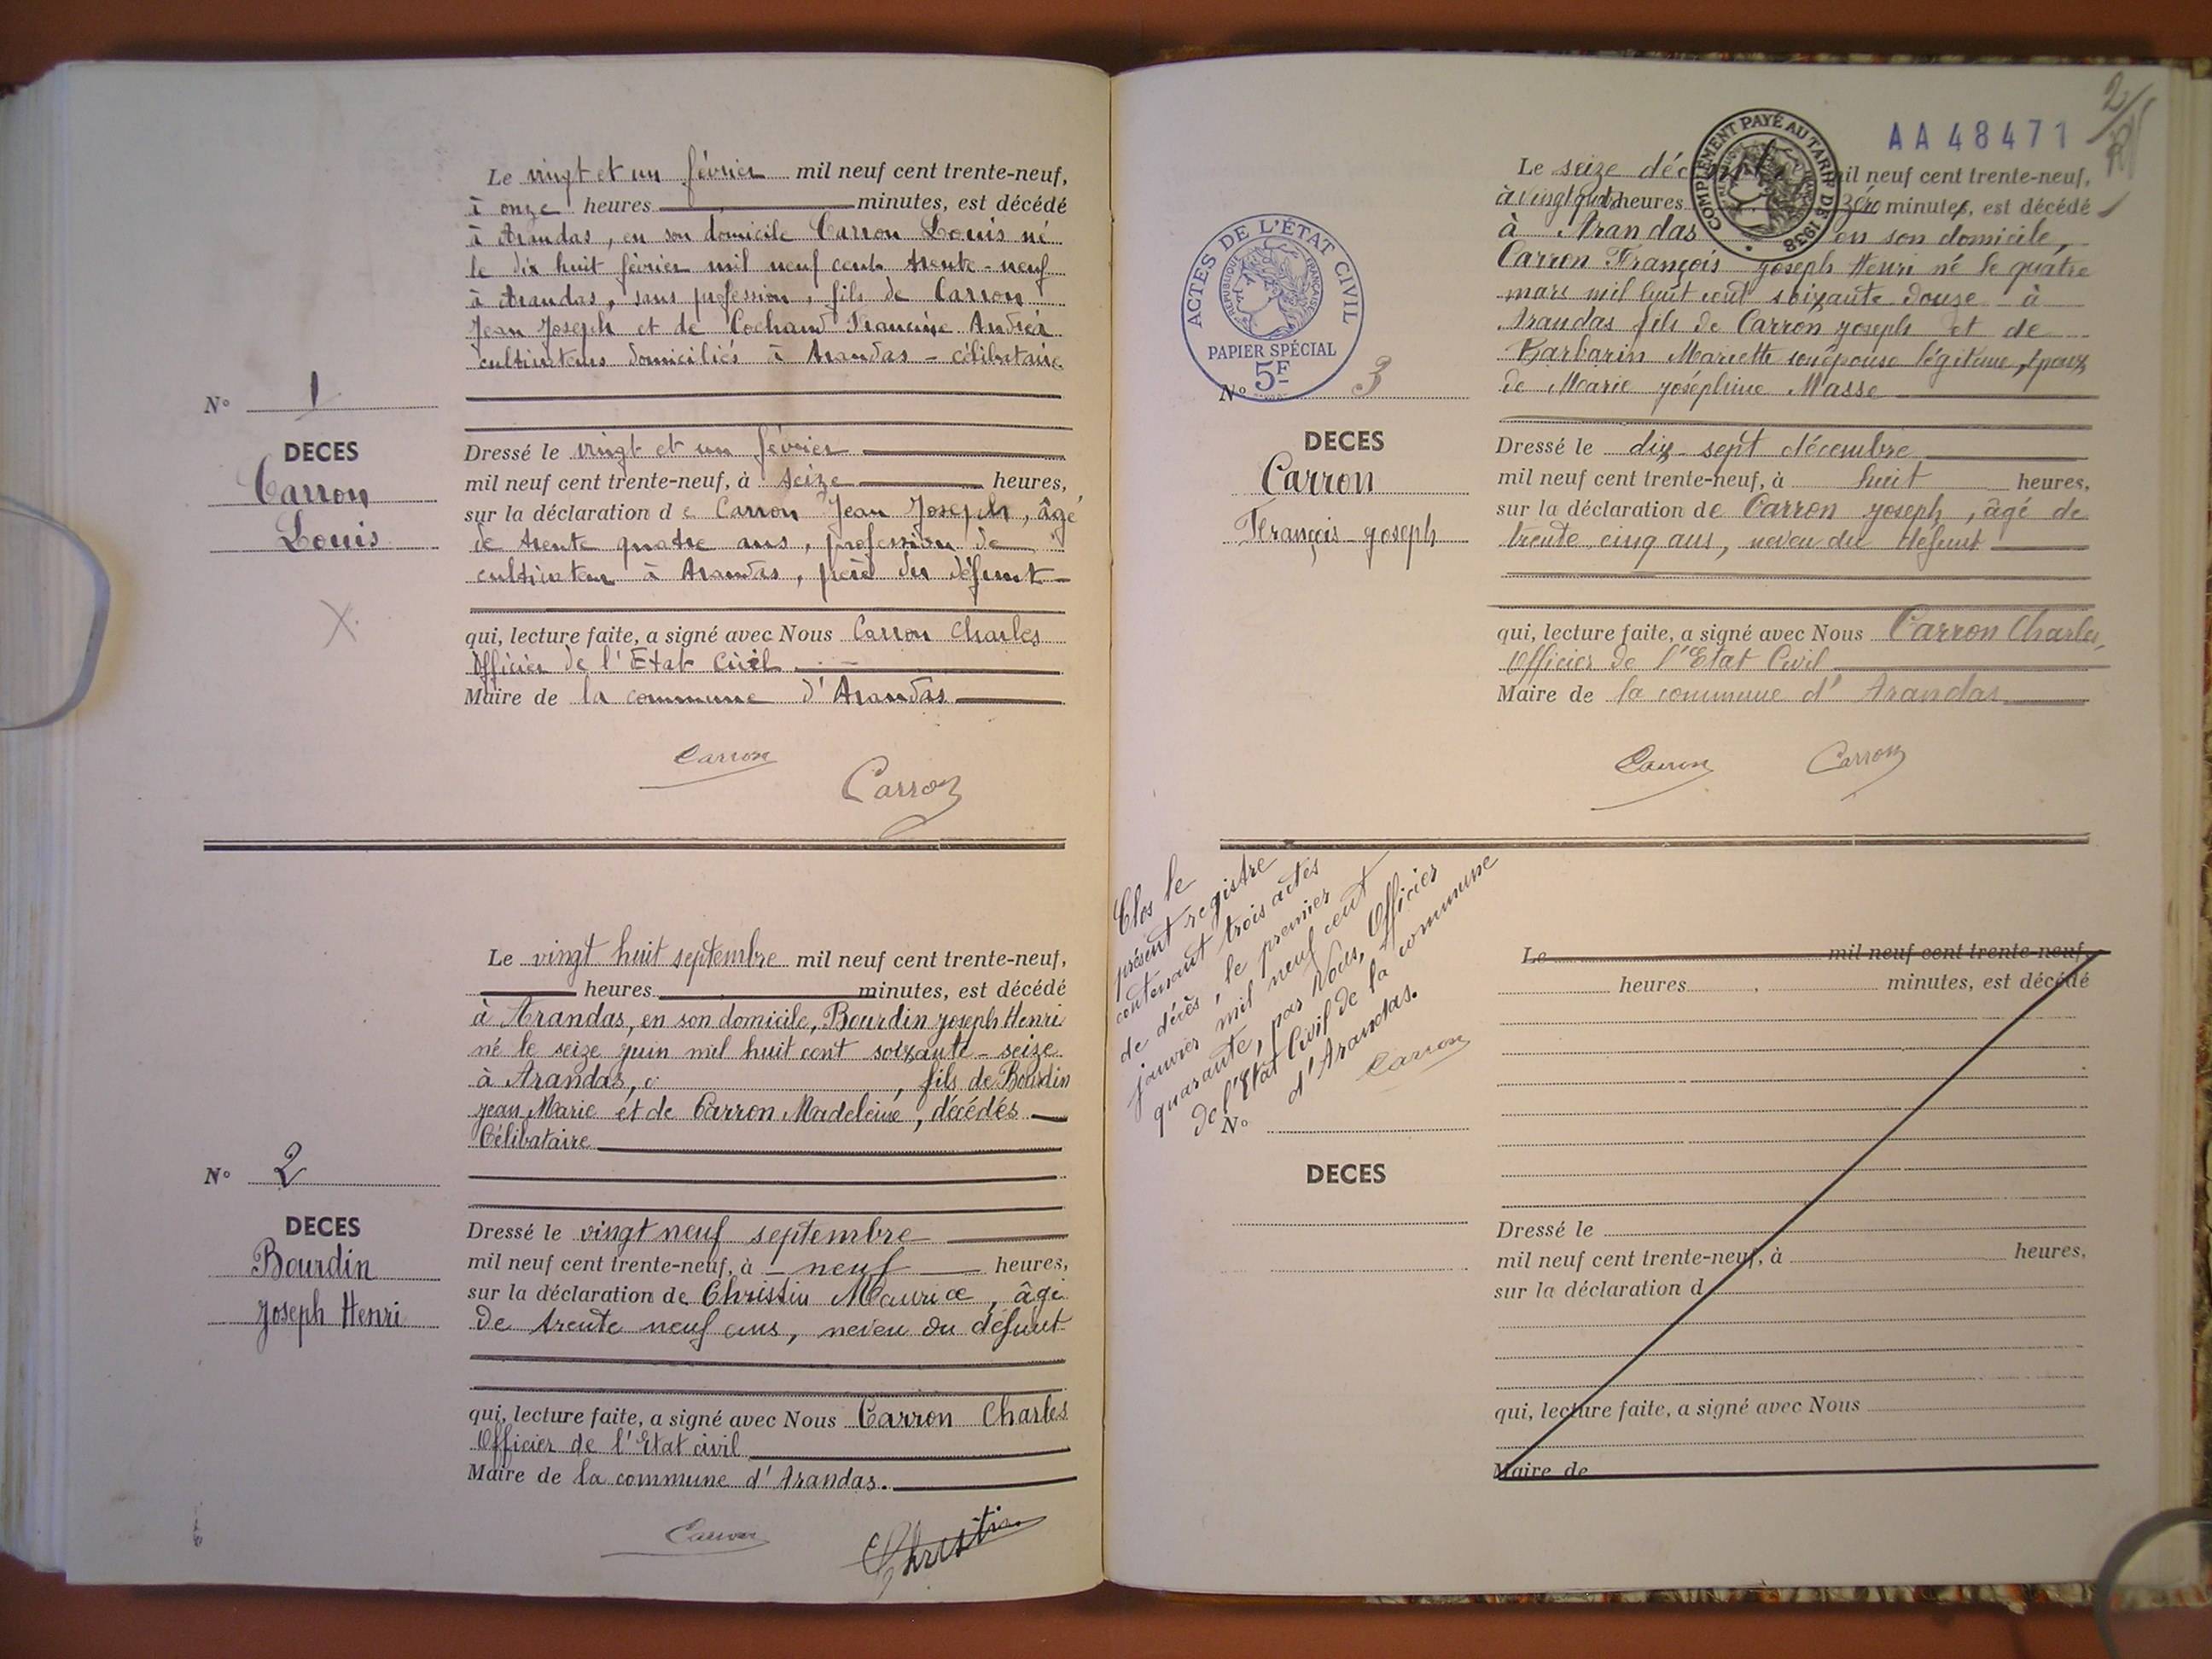 Le vingt et un février mil neuf cent trente-neuf,
à onze heures minutes, est décédé
à Arandas, en son domicile Carron Louis né
le dix huit février mil neuf cent trente-neuf
à Arandas, sans profession, fils de Carron
Jean Joseph et de Cochand Francine Andréa
cultivateurs domiciliés à Arandas - célibataire
N° 1
DECES
Carron
Louis
Dressé le vingt et un février
mil neuf cent trente-neuf, à seize heures,
sur la déclaration de Carron Jean Joseph, âgé
de trente quatre ans, profession de
cultivateur à Arandas, père du défunt
qui, lecture faite, a signé avec Nous Carron Charles
Officier de l'Etat Civil
Maire de la commune d'Arandas
Carron
Carron
Le vingt huit septembre mil neuf cent trente-neuf,
heures minutes, est décédé
à Arandas, en son domicile, Bourdin Joseph Henri
né le seize juin mil huit cent soixante-seize
à Arandas, fils de Bourdin
Jean Marie et de Carron Madeleine, décédés
Célibataire
N° 2
DECES
Bourdin
Joseph Henri
Dressé le vingt neuf septembre
mil neuf cent trente-neuf, à neuf heures,
sur la déclaration de Christin Maurice, âgé
de trente neuf ans, neveu du défunt
qui, lecture faite, a signé avec Nous Carron Charles
Officier de l'Etat civil
Maire de la commune d'Arandas.
Carron
Christin
2
AA48471
COMPLÉMENT PAYÉ AU TARIF DE 1938
Le seize déc mil neuf cent trente-neuf,
à heures zéro minutes, est décédé
à Arandas en son domicile,
Carron François Joseph Henri né le quatre
mars mil huit cent soixante douze à
Arandas fils de Carron Joseph et de
Barbarin Mariette son épouse légitime, époux
de Marie Joséphine Masse
ACTES DE L'ÉTAT CIVIL
RÉPUBLIQUE FRANÇAISE
PAPIER SPÉCIAL
5F
N° 3
DECES
Carron
François-Joseph
Dressé le dix-sept décembre
mil neuf cent trente-neuf, à huit heures,
sur la déclaration de Carron Joseph, âgé de
trente cinq ans, neveu du défunt
qui, lecture faite, a signé avec Nous Carron Charles,
Officier de l'Etat Civil
Maire de la commune d'Arandas
Carron
Carron
Clos le
présent registre
contenant trois actes
de décès, le premier
janvier mil neuf cent
quarante, par Nous, Officier
de l'Etat Civil de la commune
d'Arandas.
Carron
Le mil neuf cent trente-neuf,
heures minutes, est décédé
N°
DECES
Dressé le
mil neuf cent trente-neuf, à heures,
sur la déclaration d
qui, lecture faite, a signé avec Nous
Maire de